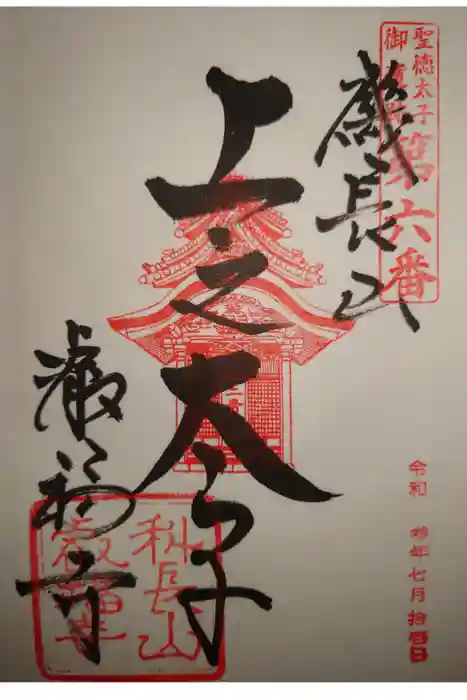 聖徳太子
御遺跡
第六番
磯長山
上之太子
叡福寺
科長山
叡福寺
令和 参年七月拾壱日